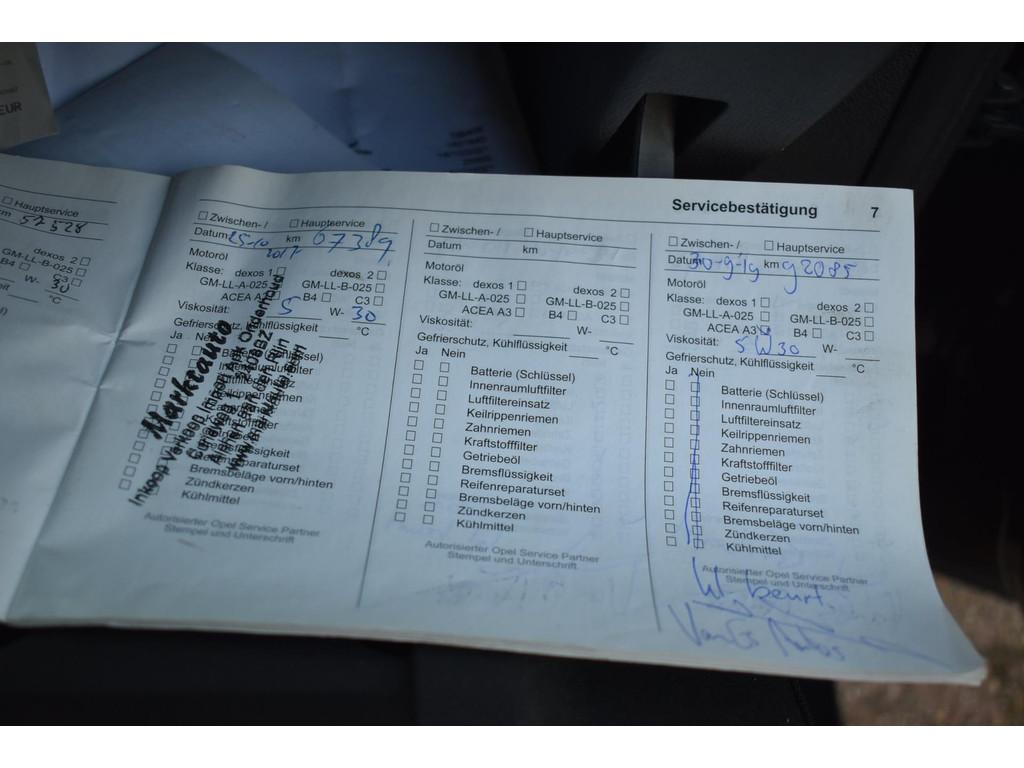 EUR
Servicebestätigung 7
Hauptservice
km 57528
dexos 2
GM-LL-B-025
B4 C3
W- 30
°C
Zwischen-/ Hauptservice
Datum 25-10 2017 km 67389
Motoröl
Klasse: dexos 1 dexos 2
GM-LL-A-025 GM-LL-B-025
ACEA A3 B4 C3
Viskosität: 5 W- 30
Gefrierschutz, Kühlflüssigkeit °C
Ja Nein
Batterie (Schlüssel)
Innenraumluftfilter
Luftfiltereinsatz
Keilrippenriemen
Bremsflüssigkeit
Reifenreparaturset
Bremsbeläge vorn/hinten
Zündkerzen
Kühlmittel
Marktauto
Inkoop Verkoop Import APK Onderhoud
Autorisierter Opel Service Partner
Stempel und Unterschrift
Zwischen-/ Hauptservice
Datum km
Motoröl
Klasse: dexos 1 dexos 2
GM-LL-A-025 GM-LL-B-025
ACEA A3 B4 C3
Viskosität: W-
Gefrierschutz, Kühlflüssigkeit °C
Ja Nein
Batterie (Schlüssel)
Innenraumluftfilter
Luftfiltereinsatz
Keilrippenriemen
Zahnriemen
Kraftstofffilter
Getriebeöl
Bremsflüssigkeit
Reifenreparaturset
Bremsbeläge vorn/hinten
Zündkerzen
Kühlmittel
Autorisierter Opel Service Partner
Stempel und Unterschrift
Zwischen-/ Hauptservice
Datum 30-9-19 km 92085
Motoröl
Klasse: dexos 1 dexos 2
GM-LL-A-025 GM-LL-B-025
ACEA A3 B4 C3
Viskosität: 5W30 W-
Gefrierschutz, Kühlflüssigkeit °C
Ja Nein
Batterie (Schlüssel)
Innenraumluftfilter
Luftfiltereinsatz
Keilrippenriemen
Zahnriemen
Kraftstofffilter
Getriebeöl
Bremsflüssigkeit
Reifenreparaturset
Bremsbeläge vorn/hinten
Zündkerzen
Kühlmittel
Autorisierter Opel Service Partner
Stempel und Unterschrift
kl. beurt.